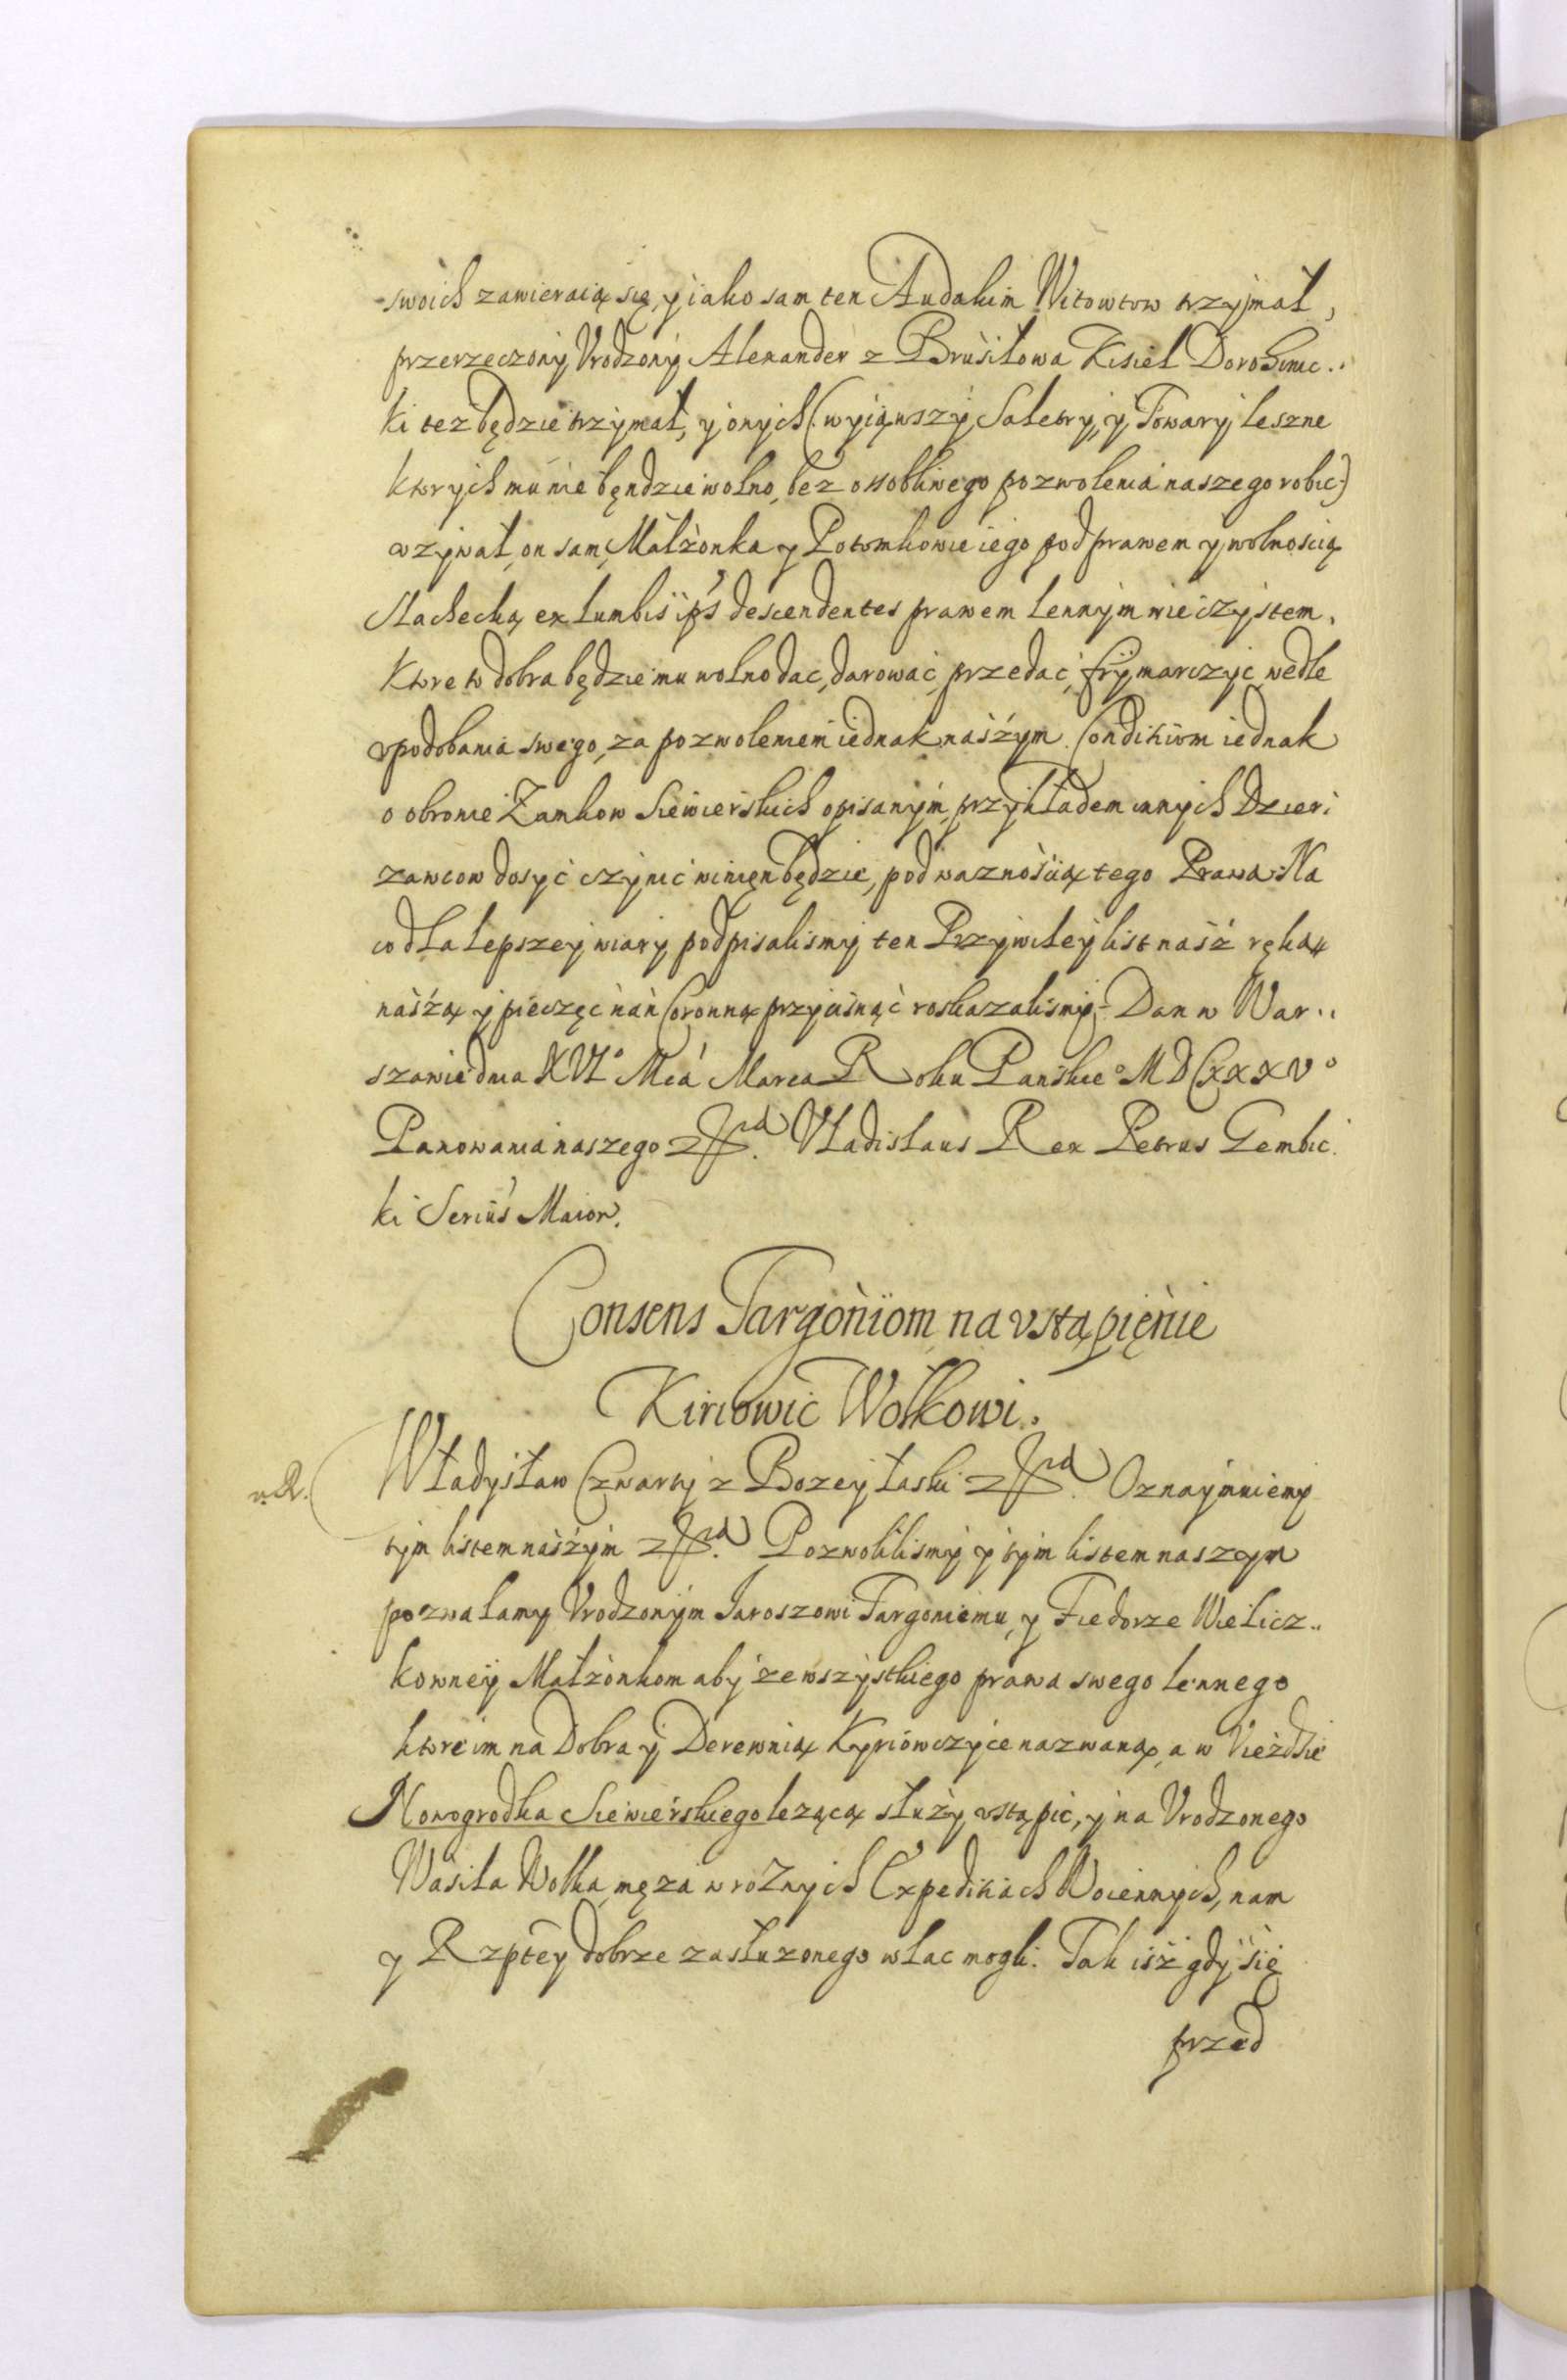 swoich zawieraią się, y iako sam ten Audakim Witowtow trzymał,
przerzeczony Vrodzony Alexander z Brusiłowa Kisiel Dorohinic..
ki tez będzie trzymał, y onych (: wyiąwszy Saletry, y Towary leszne
ktorych mu nie będzie wolno, bez ossobliwego pozwolenia naszego robic:)
vzywał, on sam, Małżonka y Potomkowie iego pod prawem y wolnoscią
Slachecką, ex lumbis ips descendentes prawem lennym wieczystem.
Ktore to dobra będzie mu wolno dac, darowac, przedac, frymarczyc, wedle
vpodobania swego, za pozwoleniem iednak naszym. Conditiom iednak
o obronie Zamkow Siewierskich opisanym, przykładem innych Dzier:
zawcow dosyć czynić winien będzie, pod waznoscią tego Prawa. Na
co dla lepszey wiary podpisalismy ten Przywiley list nasz ręką
naszą y pieczęc nań Coronną przycisnąć roskazalismy. Dan w War..
szawie dnia XVI° Mca Marca Roku Panskie° MDCXXXV°
Panowania naszego etc. Vladislaus Rex Petrus Gembic.
ki Serius Maior.
Consens Targoniom na vstąpięnie
Kiriowic Wołkowi.
Władysław Czwarty z Bozey łaski etc. Oznaymuiemy
tym listem naszym etc. Pozwolilismy y tym listem naszym
pozwalamy Vrodzonym Jaroszowi Targoniemu, y Fiedorze Wielicz..
kowney Małżonkom aby ze wszystkiego prawa swego lennego
ktore im na Dobra y Derewnią Kyriowczyce nazwaną, a w Vieździe
Nowogrodka Siewierskiego leżącą służy, vstąpic, y na Vrodzonego
Wasila Wołka, męza w roznych Expeditiach Woiennych, nam
y Rzptey dobrze zasłuzonego wlac mogli. Tak isz gdy się
przed